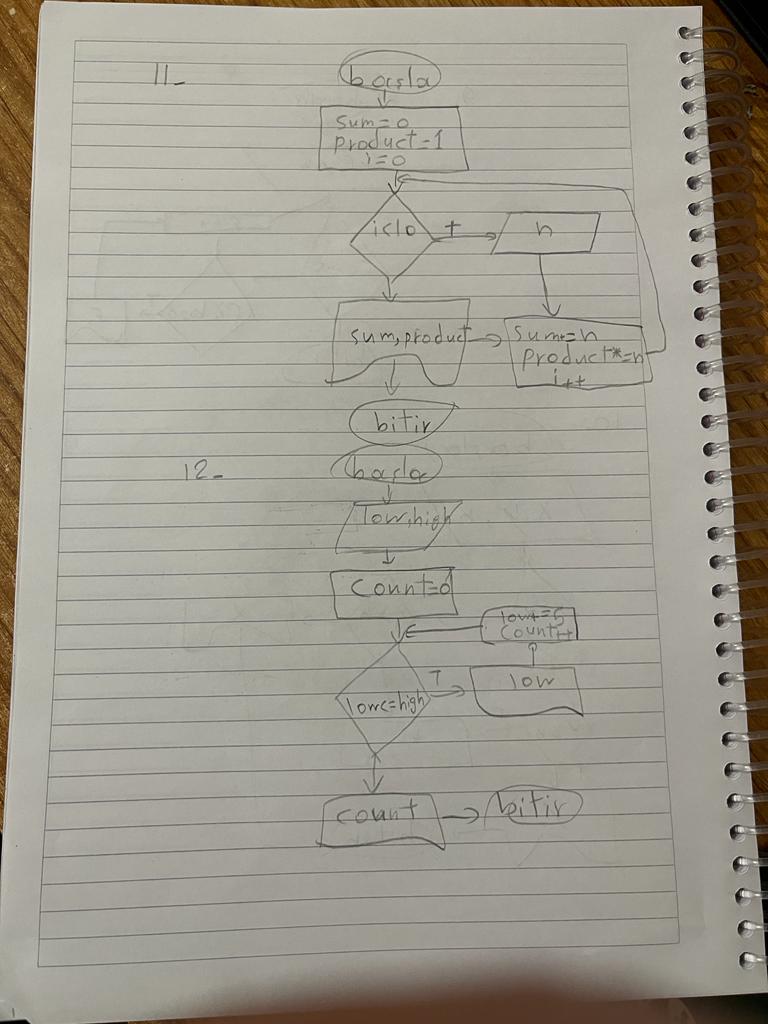 11_
başla
sum=0
product=1
i=0
i<10
T
n
sum,product
sum+=n
product*=n
i++
bitir
12_
başla
low,high
count=0
low+=5
count++
low<=high
T
low
count
bitir